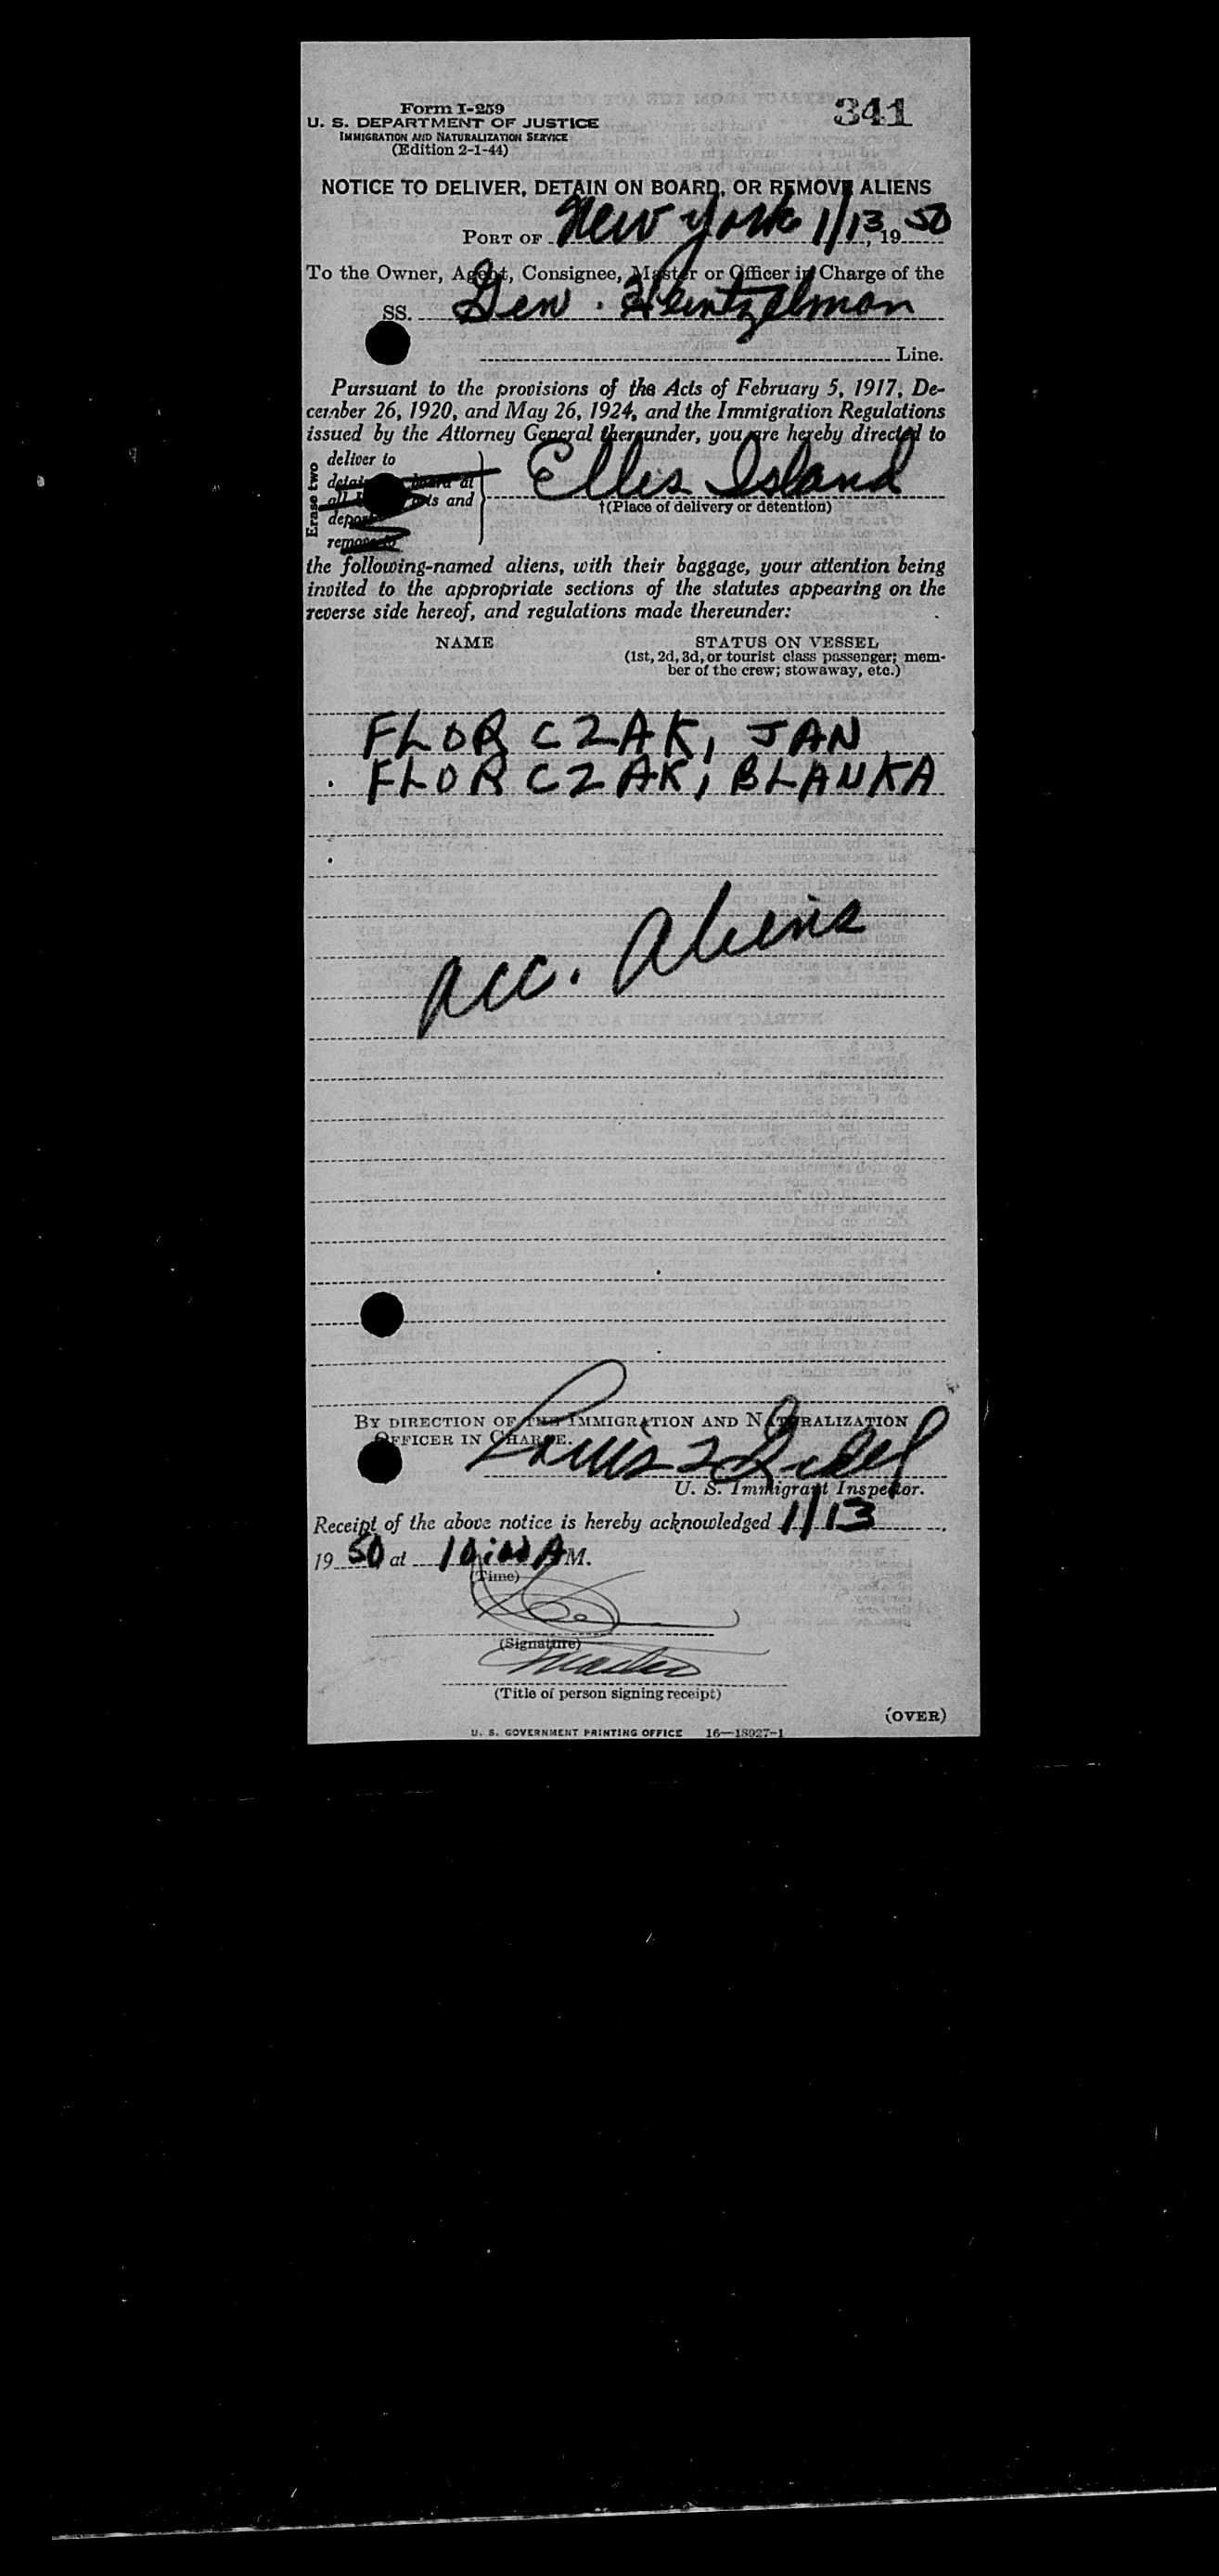 Form I-259
341
U. S. DEPARTMENT OF JUSTICE
IMMIGRATION AND NATURALIZATION SERVICE
(Edition 2-1-44)
NOTICE TO DELIVER, DETAIN ON BOARD, OR REMOVE ALIENS
PORT OF New York 1/13, 1950
To the Owner, Agent, Consignee, Master or Officer in Charge of the
SS. Gen. Heintzelman
Line.
Pursuant to the provisions of the Acts of February 5, 1917, De-
cember 26, 1920, and May 26, 1924, and the Immigration Regulations
issued by the Attorney General thereunder, you are hereby directed to
Erase two
deliver to
board at
and
remove to
Ellis Island
†(Place of delivery or detention)
the following-named aliens, with their baggage, your attention being
invited to the appropriate sections of the statutes appearing on the
reverse side hereof, and regulations made thereunder:
NAME STATUS ON VESSEL
(1st, 2d, 3d, or tourist class passenger; mem-
ber of the crew; stowaway, etc.)
FLORCZAK, JAN
FLORCZAK, BLANKA
acc. aliens
BY DIRECTION OF THE IMMIGRATION AND NATURALIZATION
OFFICER IN CHARGE.
Louis
U. S. Immigrant Inspector.
Receipt of the above notice is hereby acknowledged 1/13,
1950 at 10:00 AM.
(Time)
(Signature)
Master
(Title of person signing receipt)
(OVER)
U. S. GOVERNMENT PRINTING OFFICE 16—18027-1